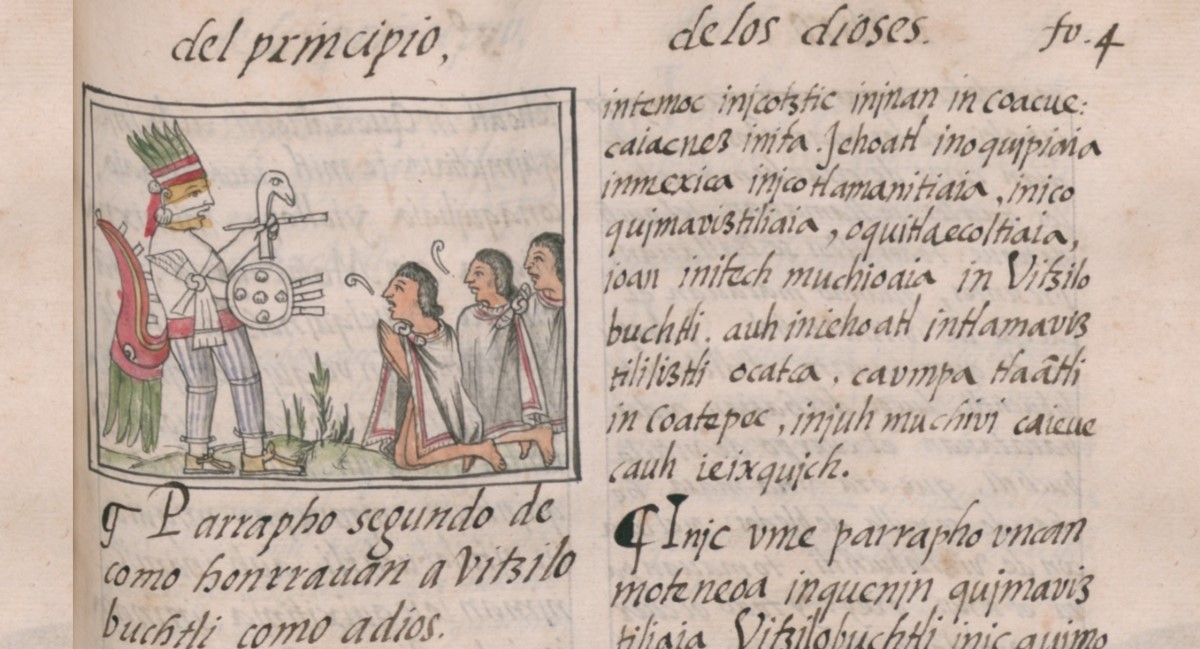 del principio,
de los dioses.
fo. 4
¶ Parrapho segundo de
como honrrauan a Vitzilo
buchtli como a dios.
intemoc injcotztic injnan in coacue:
caiacnez inita. Jehoatl inoqujpiaia
inmexica injcotlamanitiaia, inico
qujmaviztiliaia, oquitlaecoltiaia,
ioan initech muchioaia in Vitzilo
buchtli. auh iniehoatl intlamaviz
tililiztli ocatca, caumpa tlaātli
in Coatepec, injuh muchivi caieue
cauh ieixqujch.
¶ Injc vme parrapho vncan
moteneoa inquenin qujmaviz
tiliaia Vitzilobuchtli injc quimo